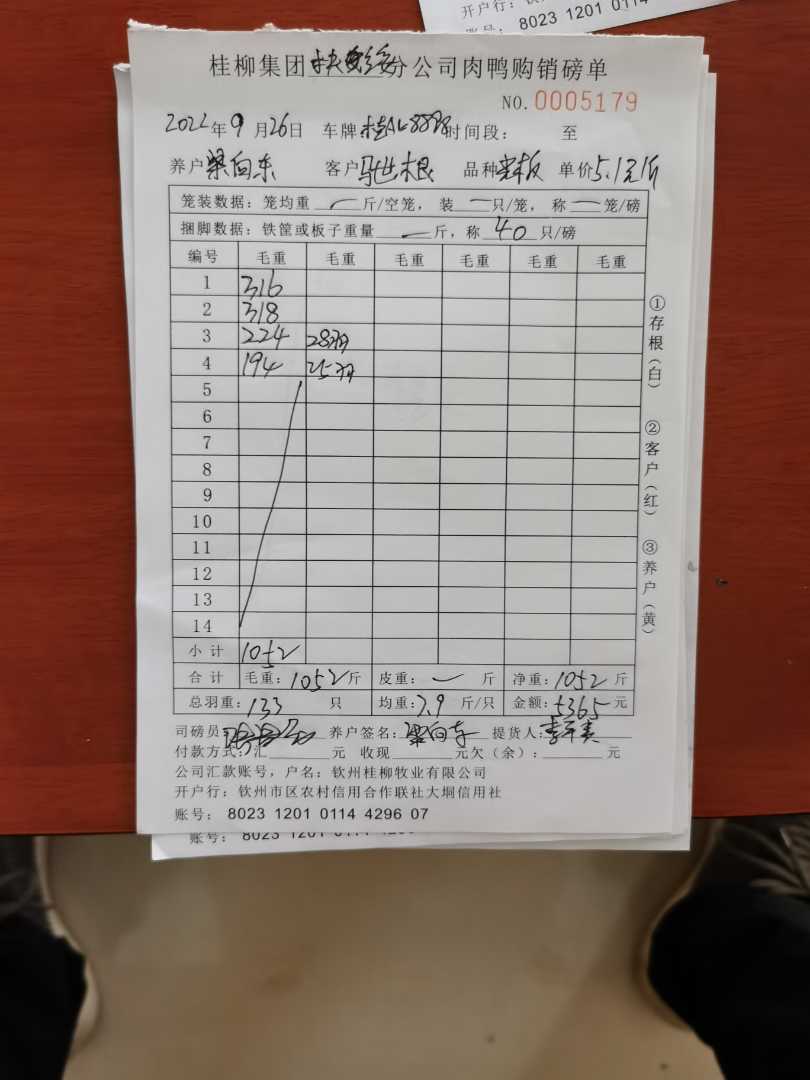 开户行：钦
账号： 8023 1201 0114
桂柳集团 分公司肉鸭购销磅单
NO.0005179
2022年9月26日 车牌 时间段： 至
养户梁向东 客户 品种光板 单价5.1元/斤
笼装数据：笼均重 一 斤/空笼， 装 一 只/笼， 称 一 笼/磅
捆脚数据：铁筐或板子重量 一 斤，称 40 只/磅
编号 毛重 毛重 毛重 毛重 毛重 毛重
1 316
2 318
3 224 28羽
4 194 25羽
5
6
7
8
9
10
11
12
13
14
小计 1052
合计 毛重：1052斤 皮重： 一 斤 净重：1052斤
总羽重：133 只 均重：7.9 斤/只 金额：5365元
司磅员： 养户签名：梁向东 提货人：
付款方式：汇 元 收现 元欠（余）： 元
公司汇款账号，户名：钦州桂柳牧业有限公司
开户行：钦州市区农村信用合作联社大垌信用社
账号： 8023 1201 0114 4296 07
账号： 8023 1201 0114
①存根（白）
②客户（红）
③养户（黄）